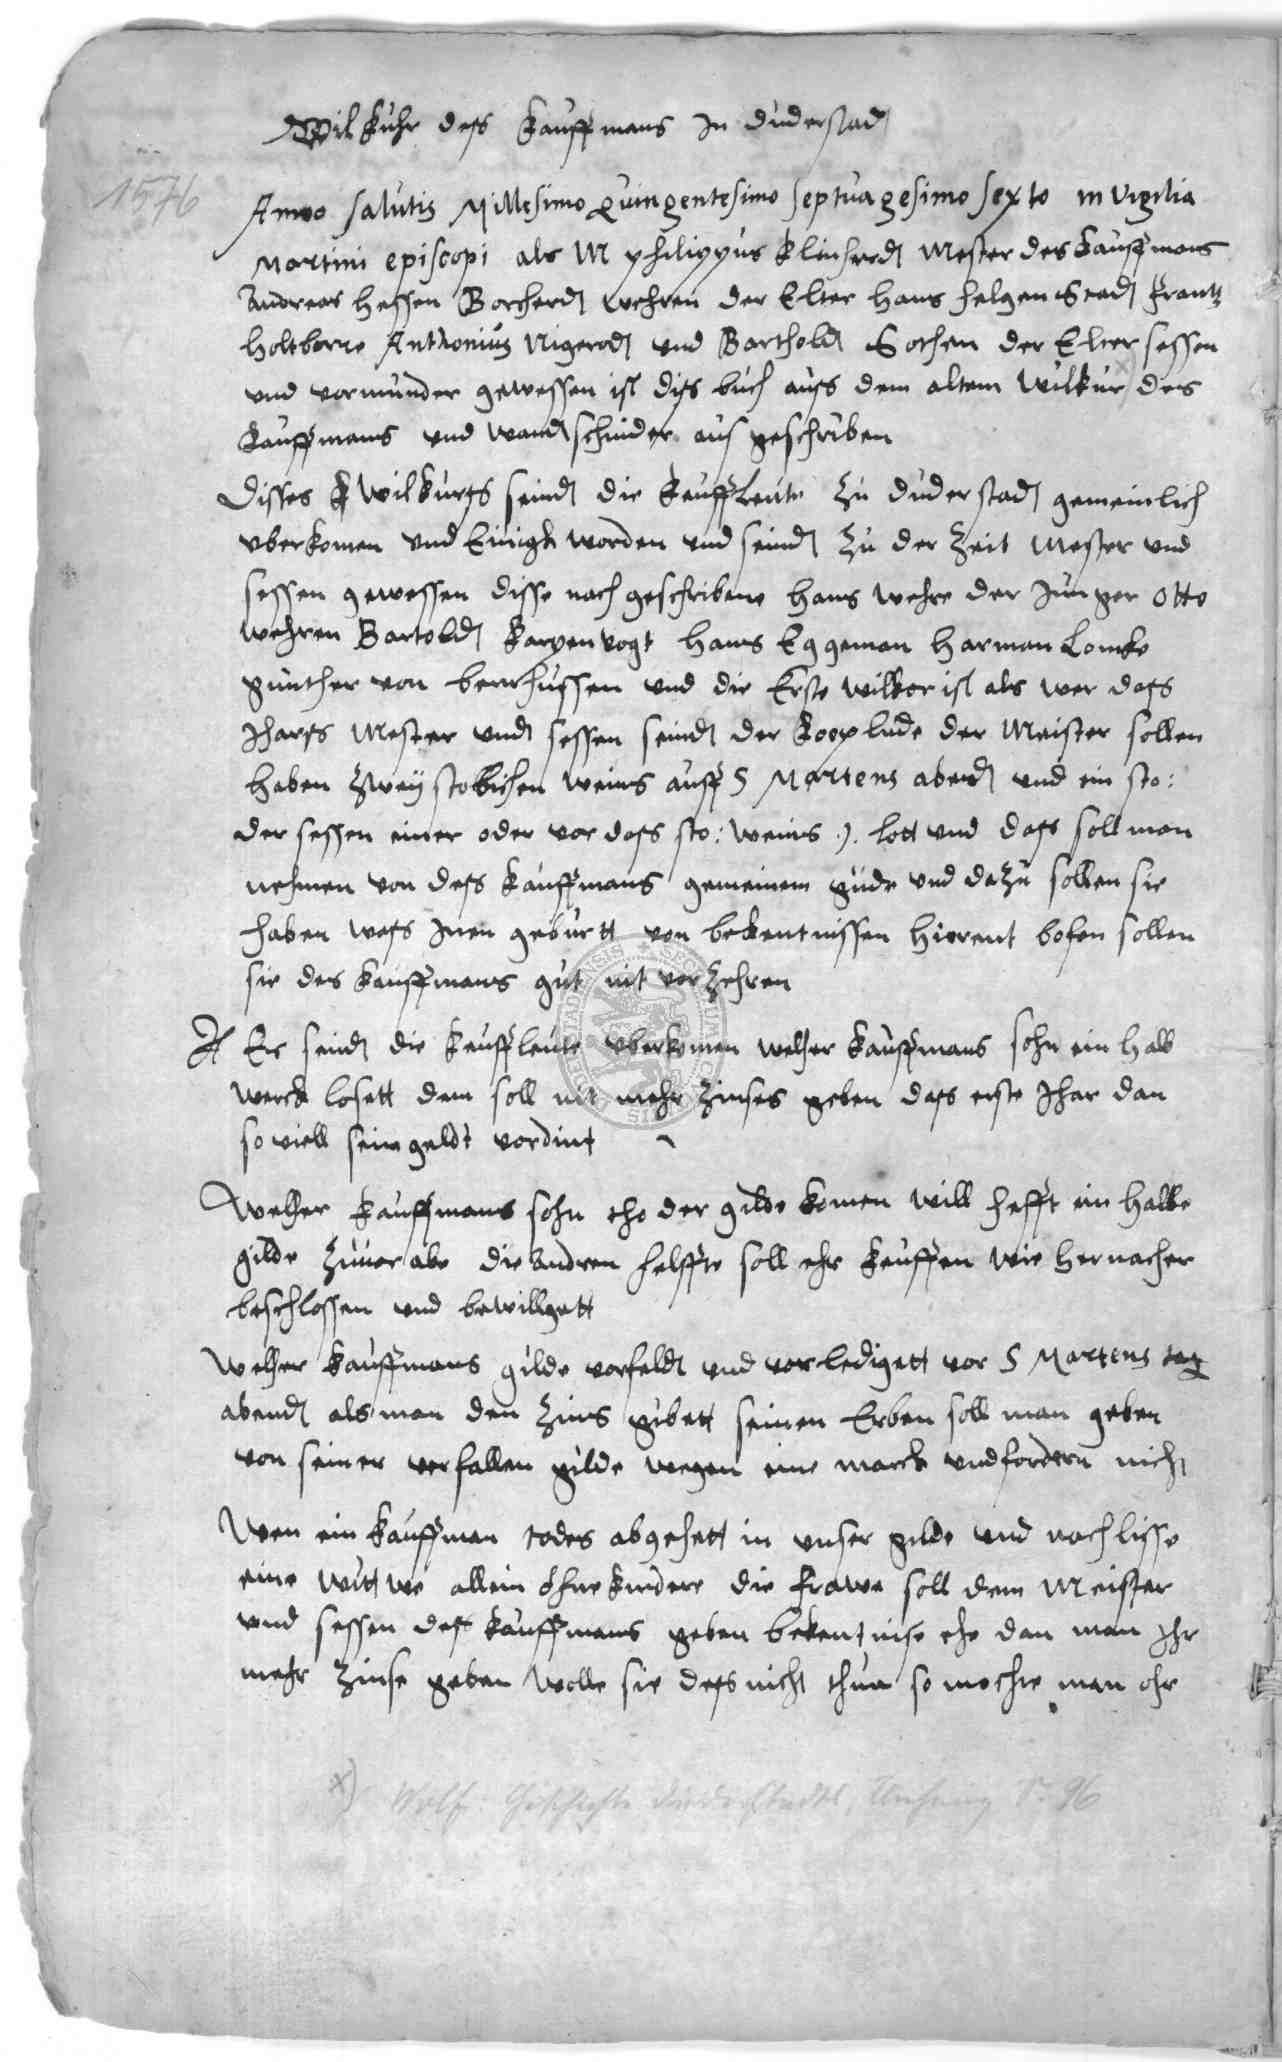 Wilkuhr dess Kauffmans In Duderstad
1576
Anno salutis Millesimo quingentesimo septuagesimo sexto in vigilia
Martini episcopi als M philippus Klinhard Mester des Kauffmans
Andreas Hessen Borcherd Wehren der Elter Hans Helgen Stad Frantz
Holtborne Anthonius Nigerod und Barthold Sothen der Elter sessen
und vormunder gewessen ist diss buch auss dem altem Wilkur des
Kauffmans und Wandschnider aus geschriben
Disses Wilkurss seind die Keuffleute zu Duderstad gemeinlich
uberkomen und Einigk worden und seind zu der Zeit Mester und
sessen gewessen disse nach geschribene Hans Wehre der Junger Otto
Wehren Bartold Karpenvogt Hans Eggeman Harman Lomke
Gunther von Berrhussen und die Erste wilkor ist als wer dass
Jharss Mester und sessen seind der Kooplude der Meister sollen
haben zweij stobichen weins auff S Martens abend und ein sto:
der sessen einer oder vor dass sto: weins .j. lott und dass soll man
nehmen von dess Kauffmans gemeinem gude und dazu sollen sie
haben wess Inen geburtt von bekentnissen hierent bofen sollen
sie des Kauffmans gut nit vorzehren
Es seind die Keuffleute uberkomen welher Kauffmans sohn ein halb
werck losett dem soll nit mehr zinses geben dass erste Jhar dan
so viell sein geldt vordint
Welher Kauffmans sohn tho der gilde komen will hefft ein halbe
gilde zuuor abe die andren helffte soll ehr Keuffen wie hernacher
beschlossen und bewillgett
Welher Kauffmans gilde vorfeld und vorledigett vor S Martens tag
abend als man den zins gibett seinen Erben soll man geben
von seiner verfallen gilde wegen eine marck und fordern nicht
Wen ein Kauffman todes abgehett in unser gilde und nach lisse
eine wittwe allein ohne Kindere die frawe soll dem Meister
und sessen dess Kauffmans geben bekentnise ehe dan man Ihr
mehr zinse geben Wolle sie dess nicht thun so mochte man ohr
x) Wolf: Geschichte Duderstadts, Anhang S. 96